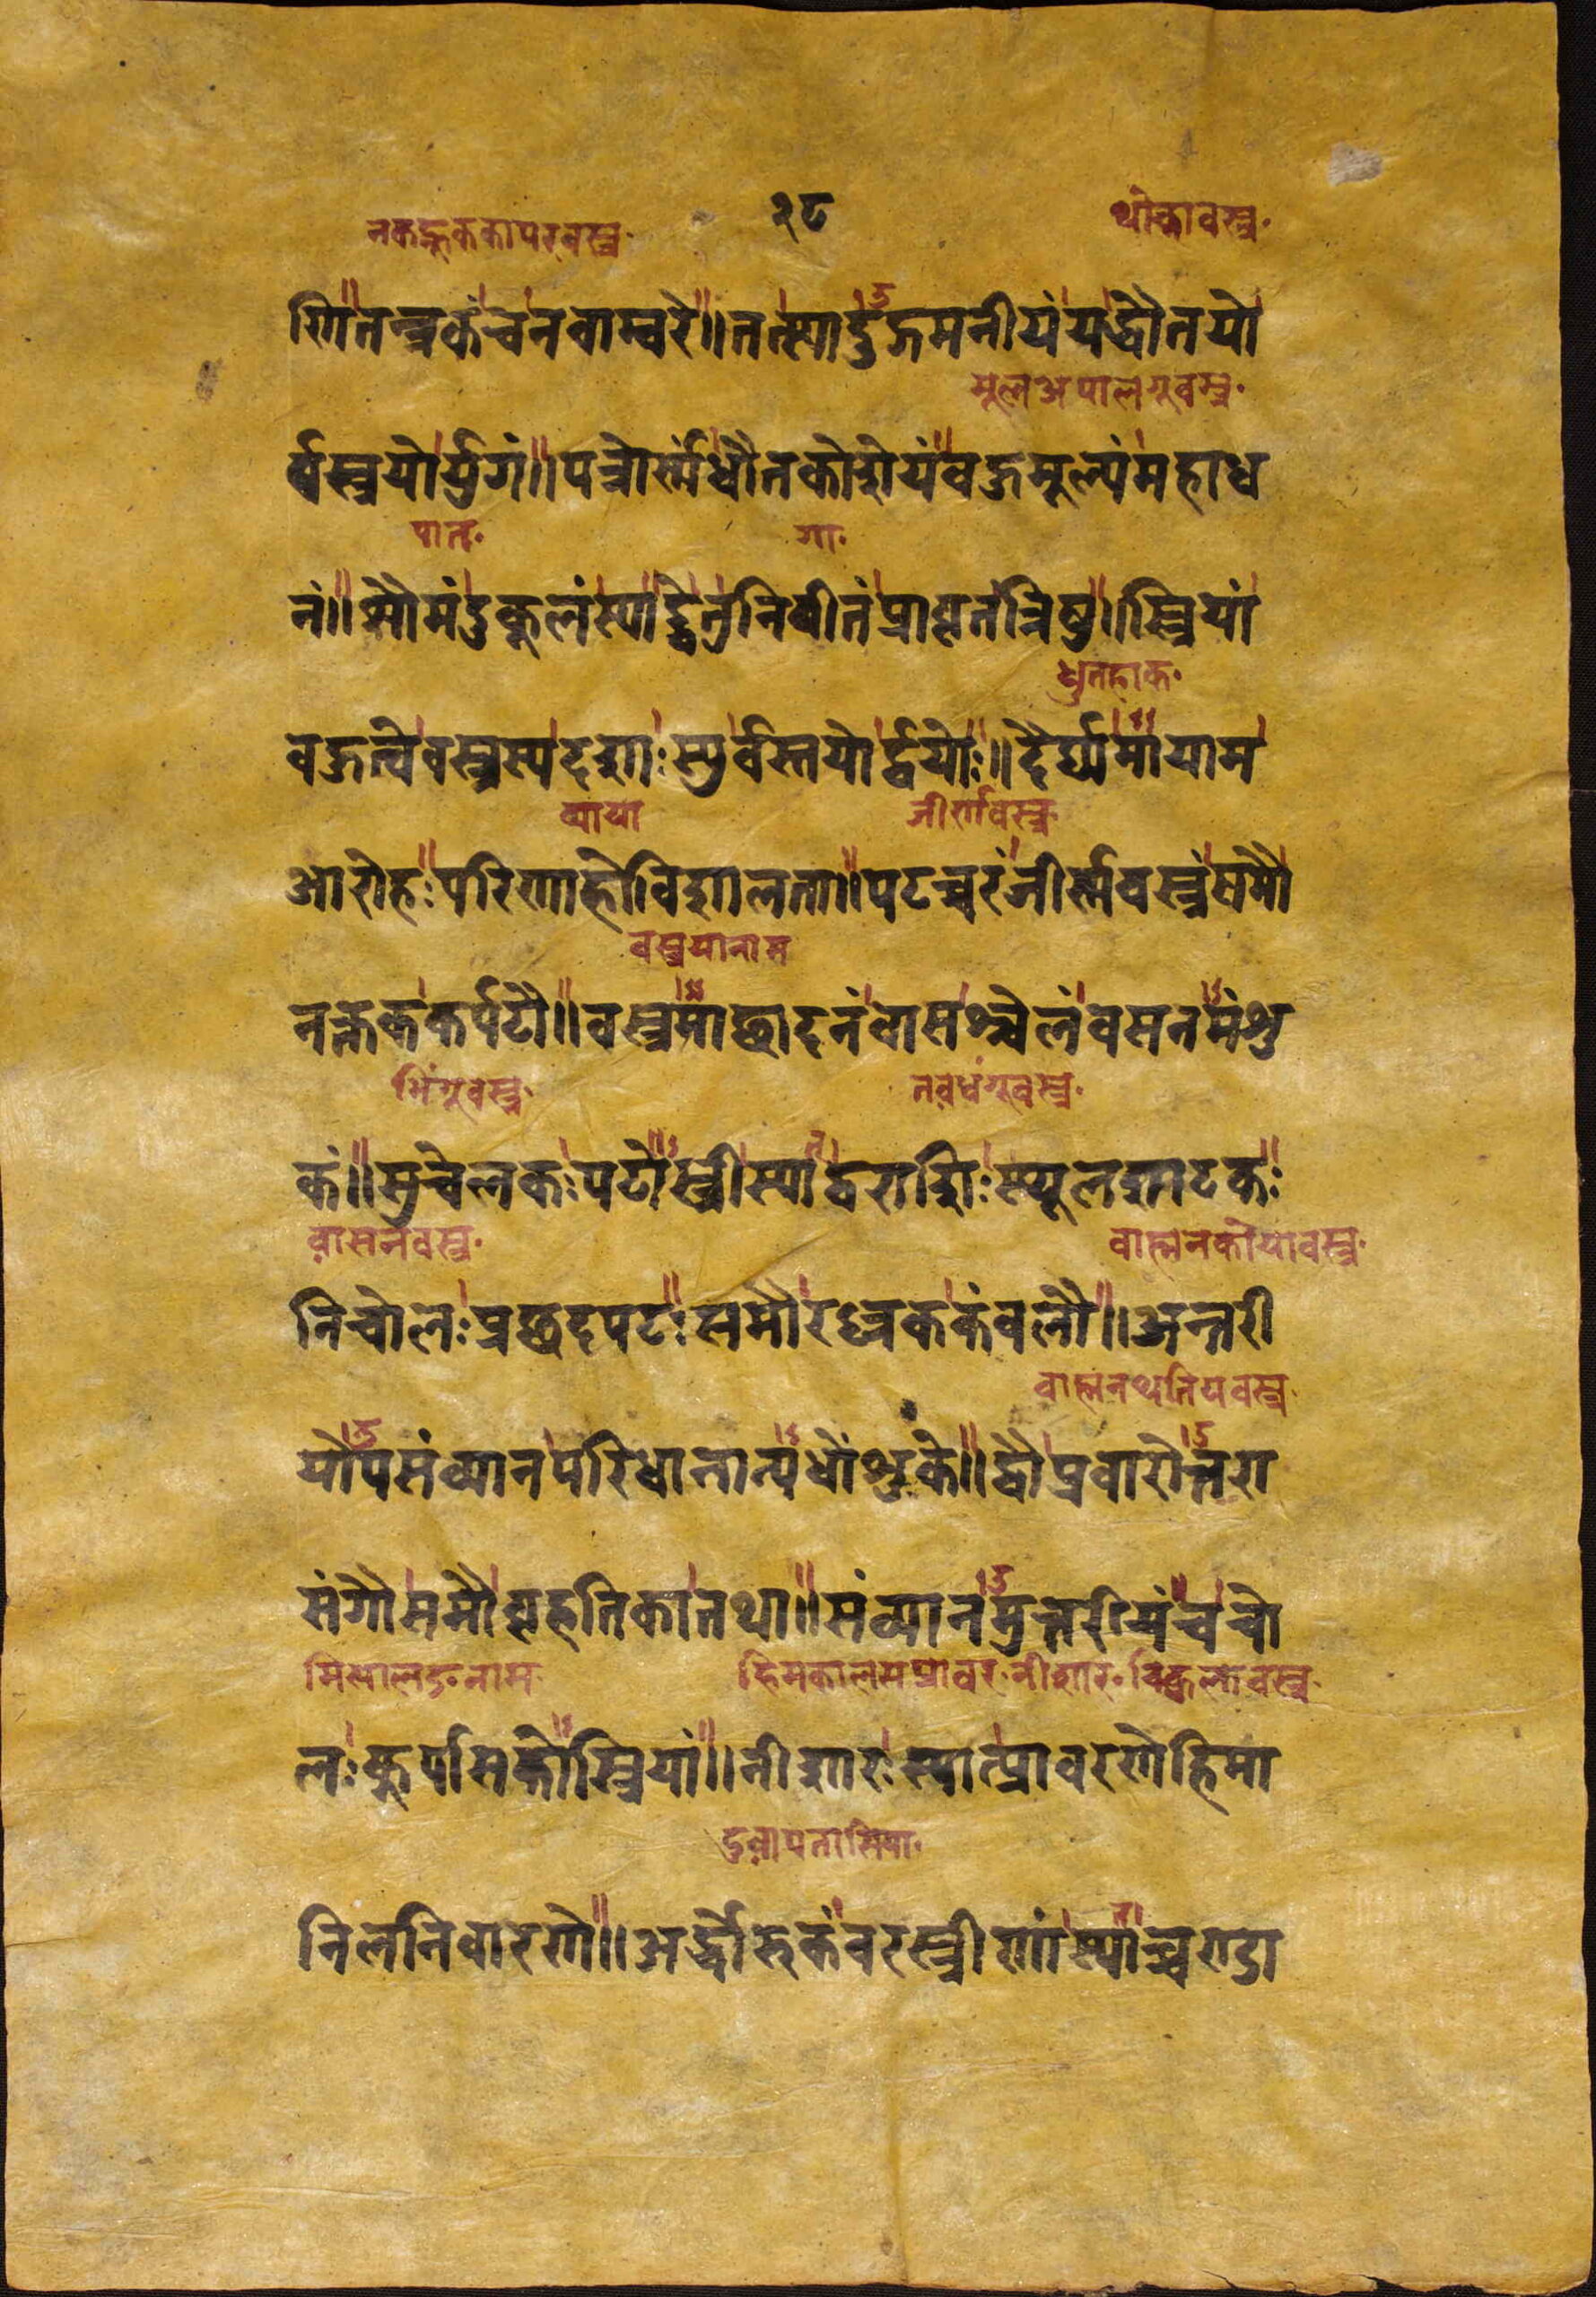 २८
नकङ्कककापरवस्त्र॰ थीकावस्त्र॰
णितन्त्रकंचनवाम्बरे॥तत्स्यादुद्गमनीयंयद्धौतयो
मूलअपालगूवस्त्र॰
र्व्वस्त्रयोर्युगं॥पत्रोर्ण्णंधौतकोशेयंवहुमूल्यंमहाध
पात॰ गा॰
नं॥क्षौमंदुकूलंस्याद्द्वेतुनिवीतंप्रावृतंत्रिषु॥स्त्रियां
वहुत्वेवस्त्रस्यदशाःस्युर्वस्तयोर्द्वयोः॥दैर्घ्यमायाम
जीर्णवस्त्र
आरोहःपरिणाहोविशालता॥पटच्चरंजीर्ण्णवस्त्रंसमौ
वस्त्रयानाम
नक्तककर्पटौ॥वस्त्रमाछादनंवासश्चैलंवसनमंशु
भिंगूवस्त्र॰ तवधंगूवस्त्र॰
कं॥सुचेलकःपटोस्त्रीस्याद्वराशिःस्थूलशाटकः
वासनवस्त्र॰
निचोलःप्रछदपटःसमौरल्लककंवलौ॥अन्तरी
योपसंव्यानपरिधानान्यधोंशुके॥द्वौप्रवारोत्तरा
संगौसमौवृहतिकातथा॥संव्यानमुत्तरीयंचचो
लःकूर्पासकोस्त्रियां॥नीशारःस्यात्प्रावरणेहिमा
निलनिवारणे॥अर्द्धोरुकंवरस्त्रीणांस्याच्चण्डा